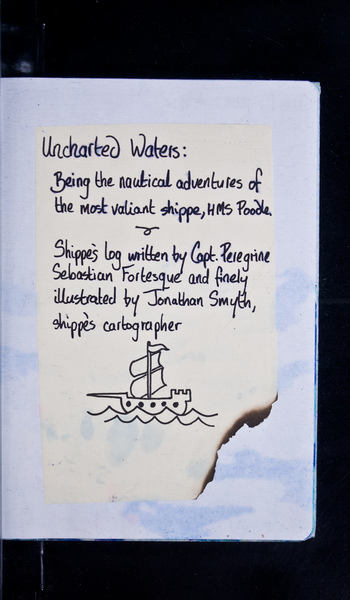 Uncharted Waters:
Being the nautical adventures of
the most valiant shippe, HMS Poodle.
Shippe's log written by Capt. Peregrine
Sebastian Fortesque and finely
illustrated by Jonathan Smyth,
shippe's cartographer